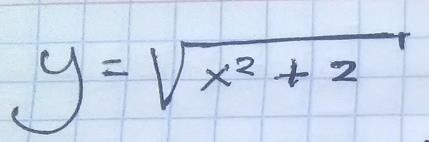 y = √(x² + 2)